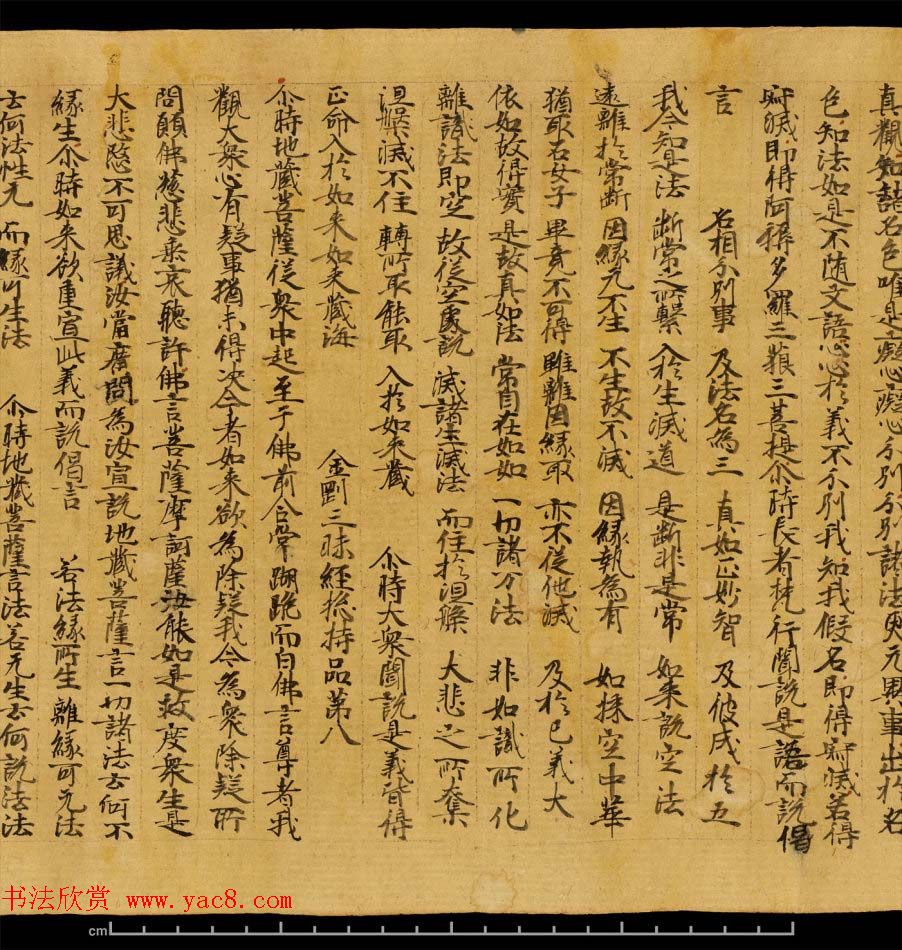 真觀知諸名色唯是癡心癡心分別分別諸法更无異事出於名
色知法如是不随文語心心於義不分別我知我假名即得寂滅若得
寂滅即得阿耨多羅三藐三菩提尒時長者梵行聞說是語而說偈
言　名相分別事　及法名為三　真如正妙智　及彼成於五
我今知是法　断常之所繫　入於生滅道　是断非是常　如来說空法
遠離於常断　因緣无不生　不生故不滅　因緣執為有　如採空中華
猶取石女子　畢竟不可得　離離因緣取　亦不從他滅　及於已義大
依如故得實　是故真如法　常自在如如　一切諸万法　非如識所化
離識法即空　故従空處說　滅諸生滅法　而住於涅槃　大悲之所奪
涅槃滅不住　轉所取能取　入於如来藏　尒時大衆聞說是義皆得
正命入於如来如来藏海　金剛三昧経揔持品第八
尒時地藏菩薩従衆中起至于佛前合掌䠒跪而白佛言尊者我
觀大衆心有疑事猶未得决今者如来欲為除疑我今為衆除疑所
問願佛慈悲垂哀聽許佛言菩薩摩訶薩汝能如是救度衆生是
大悲愍不可思議汝當廣問為汝宣說地藏菩薩言一切諸法云何不
緣生尒時如来欲重宣此義而說偈言　若法緣所生　離緣可无法
云何法性无　而緣所生法　尒時地藏菩薩言法若无生云何說法法
书法欣赏 www.yac8.com
cm